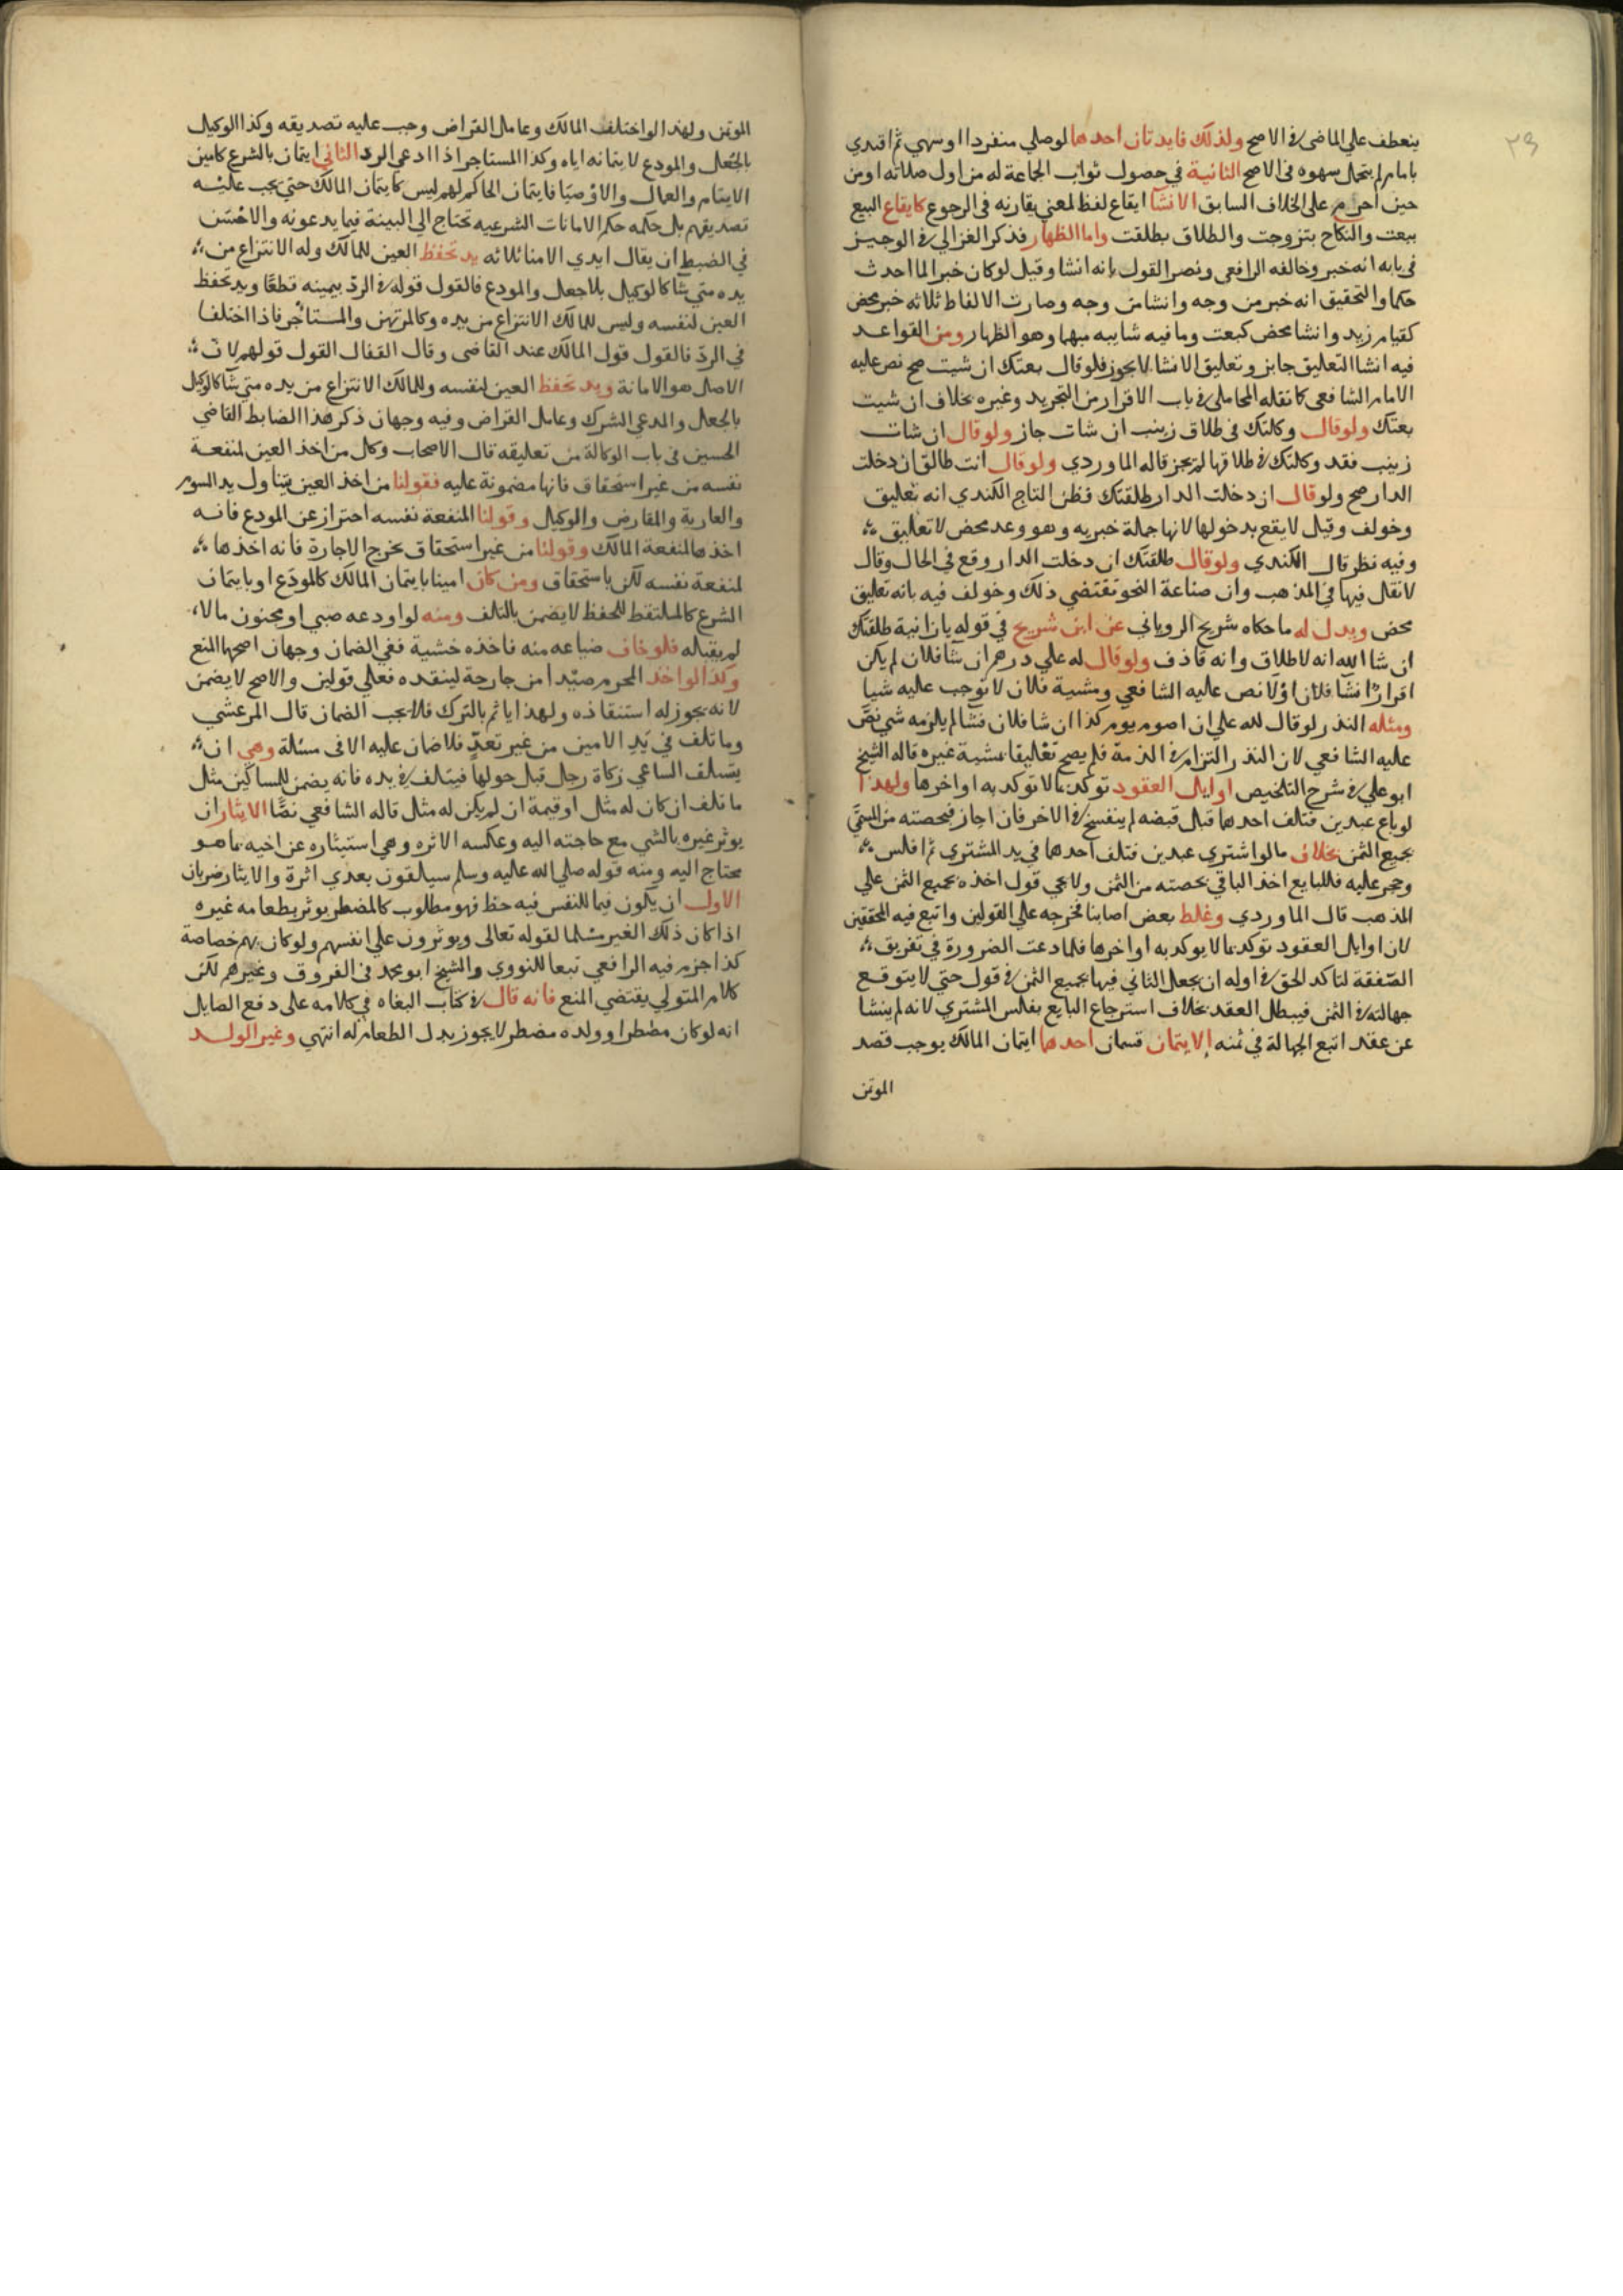 ٢٩
ينعطف علي الماضي في الاصح ولذلك فايدتان احدها لوصلي منفردا اوسهي ثم اقتدي
بامام لم يتحمل سهوه في الاصح الثانية في حصول ثواب الجماعة له من اول صلاته او من
حين احرم على الخلاف السابق الانشا ايقاع لفظ لمعني يقارنه في الرجوع كايقاع البيع
ببعت والنكاح بتزوجت والطلاق بطلقت واما الظهار فذكر الغزالي في الوجيز
في بابه انه خبر وخالفه الرافعي ونصر القول بانه انشا وقيل لوكان خبرا لما احدث
حكما والتحقيق انه خبر من وجه وانشا من وجه وصارت الالفاظ ثلاثه خبر محض
كقيام زيد وانشا محض كبعت وما فيه شايبه منهما وهو الظهار ومن القواعد
فيه انشا التعليق جايز وتعليق الانشا لايجوز فلوقال بعتك ان شيت صح نص عليه
الامام الشافعي كما نقله المحاملي في باب الاقرار من التجريد وغيره بخلاف ان شيت
بعتك ولوقال وكلتك في طلاق زينب ان شات جاز ولوقال ان شات
زينب فقد وكلتك في طلاقها لم يجز قاله الماوردي ولوقال انت طالق ان دخلت
الدار صح ولو قال ان دخلت الدار طلقتك فظن التاج الكندي انه تعليق
وخولف وقيل لا يقع بدخولها لانها جملة خبريه وهو وعد محض لا تعليق
وفيه نظر قال الكندي ولوقال طلقتك ان دخلت الدار وقع في الحال وقال
لا نقل فيها في المذهب وان صناعة النحو تقتضي ذلك وخولف فيه بانه تعليق
محض ويدل له ما حكاه شريح الروياني عن ابن شريح في قوله يا زانية طلقتك
ان شا الله انه لا طلاق وانه قاذف ولوقال له علي درهم ان شا فلان لم يكن
اقرارًا نشا فلان اولا نص عليه الشافعي ومشية فلان لا توجب عليه شيا
ومثله النذر لو قال لله علي ان اصوم يوم كذا ان شا فلان فشا لم يلزمه شي نصَّ
عليه الشافعي لان النذر التزام في الذمة فلم يصح تعليقا بمشية غيره قاله الشيخ
ابو علي في شرح التلخيص اوايل العقود توكد بما لا توكد به اواخرها ولهذا
لو باع عبدين فتلف احدها قبل قبضه لم ينفسخ في الاخر فان اجاز فبحصته من المسمَّي
بجميع الثمن بخلاف مالو اشتري عبدين فتلف احدها في يد المشتري ثم افلس
وحجر عليه فللبايع اخذ الباقي بحصته من الثمن ولا يجي قول اخذه بجميع الثمن علي
المذهب قال الماوردي وغلط بعض اصحابنا فخرجه علي القولين واتبع فيه المحققين
لان اوايل العقود توكد بما لا يوكد به اواخرها فلما دعت الضرورة في تفريق
الصفقة لتاكد الحق في اوله ان يجعل الثاني فيها بجميع الثمن في قول حتي لا يتوقع
جهالته في الثمن فيبطل العقد بخلاف استرجاع البايع بفلس المشتري لانه لم ينشا
عن عقد اتبع الجهالة في ثمنه الايتمان قسمان احدها ايتمان المالك يوجب قصد
الموتمن
الموتمن ولهذا لو اختلف المالك وعامل القراض وجب عليه تصديقه وكذا الوكيل
بالجعل والمودع لايتمانه اياه وكذا المستاجر اذا ادعي الرد الثاني ايتمان بالشرع كامين
الايتام والعمال والاوصيَا فايتمان الحاكم لهم ليس كايتمان المالك حتي يجب عليه
تصديقهم بل حكمه حكم الامانات الشرعيه تحتاج الي البينة فيما يدعونه والاحسن
في الضبط ان يقال ايدي الامنا ثلاثه يد تحفظ العين للمالك وله الانتزاع من
يده متي شا كالوكيل بلا جعل والمودع فالقول قوله في الردّ بيمينه قطعًا ويد تحفظ
العين لنفسه وليس للمالك الانتزاع من يده وكالمرتهن والمستاجر فاذا اختلفا
في الردّ فالقول قول المالك عند القاضي وقال القفال القول قولهم لان
الاصل هو الامانة ويد تحفظ العين لنفسه وللمالك الانتزاع من يده متي شا كالوكيل
بالجعل والمدعي الشرك وعامل القراض وفيه وجهان ذكر هذا الضابط القاضي
الحسين في باب الوكالة من تعليقه قال الاصحاب وكل من اخذ العين لمنفعة
نفسه من غير استحقاق فانها مضمونة عليه فقولنا من اخذ العين يتناول يد السوم
والعارية والمقارض والوكيل وقولنا لمنفعة نفسه احتراز عن المودع فانه
اخذها لمنفعة المالك وقولنا من غير استحقاق تخرج الاجارة فانه اخذها
لمنفعة نفسه لكن باستحقاق ومن كان امينا بايتمان المالك كالمودَع او بايتمان
الشرع كالملتقط للحفظ لا يضمن بالتلف ومنه لو اودعه صبي او مجنون مالا
لم يقبله فلو خاف ضياعه منه فاخذه خشية ففي الضمان وجهان اصحهما المنع
وكذا لو اخذ المحرم صيدا من جارحة لينقذه فعلي قولين والاصح لا يضمن
لانه يجوز له استنقاذه ولهذا ياثم بالترك فلا يجب الضمان قال المرعشي
وما تلف في يد الامين من غير تعدٍّ فلا ضمان عليه الا في مسئلة وهي ان
يتسلف الساعي زكاة رجل قبل حولها فيتلف في يده فانه يضمن للمساكين مثل
ما تلف ان كان له مثل او قيمة ان لم يكن له مثل قاله الشافعي نصًّا الايثار ان
يوثر غيره بالشي مع حاجته اليه وعكسه الاثره وهي استيثاره عن اخيه بما هو
محتاج اليه ومنه قوله صلي الله عليه وسلم سيلقون بعدي اثرة والايثار ضربان
الاول ان يكون فيما للنفس فيه حظ فهو مطلوب كالمضطر يوثر بطعامه غيره
اذا كان ذلك الغير مسلما لقوله تعالى ويوثرون علي انفسهم ولو كان بهم خصاصة
كذا جزم فيه الرافعي تبعا للنووي والشيخ ابو محمد في الفروق وغيرهم لكن
كلام المتولي يقتضي المنع فانه قال في كتاب البغاه في كلامه على دفع الصايل
انه لو كان مضطرا وولده مضطر لا يجوز بدل الطعام له انتهي وغير الولد